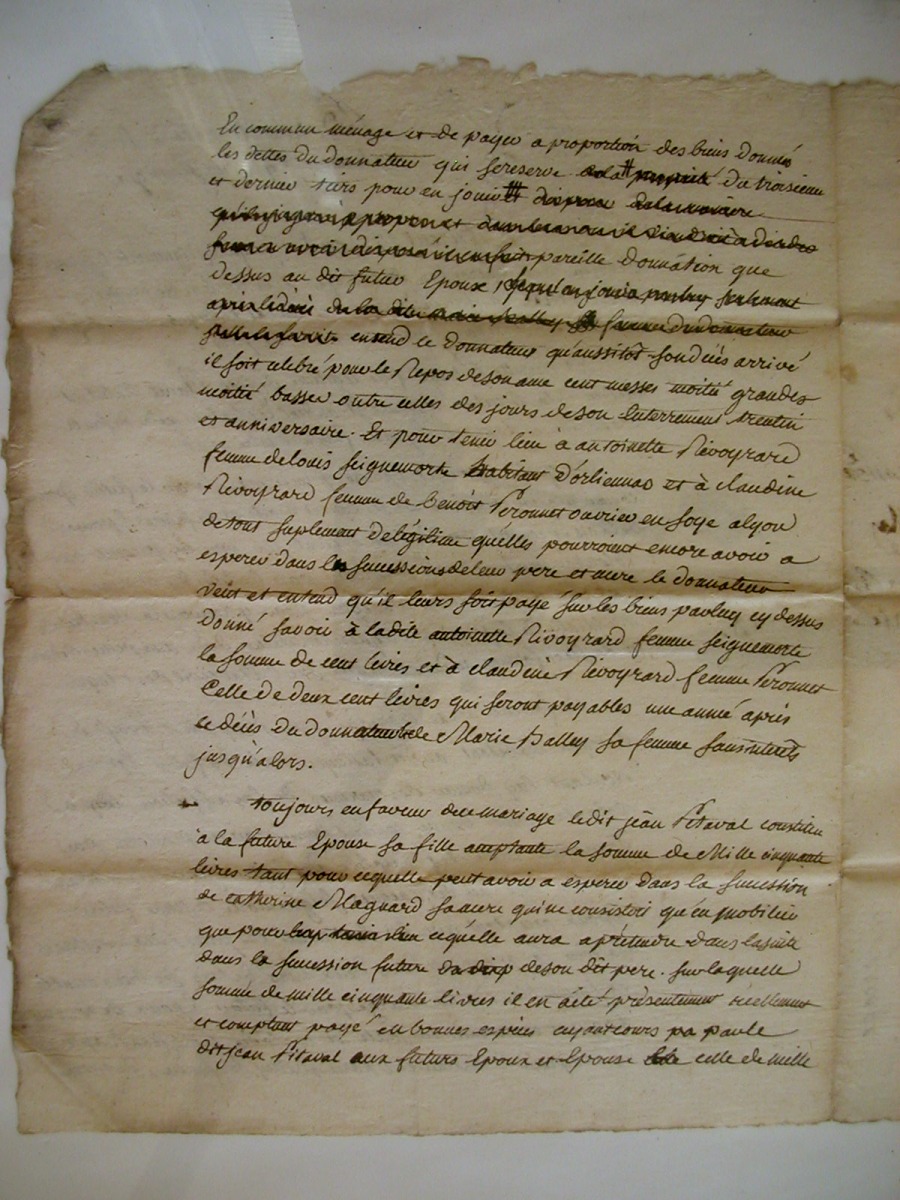 En commun ménage et de payer a proportion des biens donnés
les dettes du donnateur qui se reserve du troisieme
et dernier tiers pour en jouir et disposer
pareille donnation que
dessus au dit futur Epouse
apres le décès de la dite femme du donnateur
entend le donnateur qu'aussitôt son décés arrivé
il soit celebré pour le Repos de son ame cent messes moitié grandes
moitié basses outre celles des jours de son Enterrement trentin
et anniversaire. Et pour tenir lieu à antoinette Rivoyrard
femme de louis seignemorte habitant d'orliennas et à claudine
Rivoyrard femme de Benoit Peronnet ouvrier en soye a lyon
de tout suplement de légitime quélles pourroient encore avoir a
esperer dans les successions de leur pere et mere le donnateur
veut et entend qu'il leurs soit payé sur les biens par luy cy dessus
donné savoir à ladite antoinette Rivoyrard femme seignemorte
la somme de cent livres et à claudine Rivoyrard femme Peronnet
Celle de deux cent livres qui seront payables une année aprés
le décés du donnateur et de Marie Balley sa femme sans intérêts
jusqu'alors.
toujours en faveur de ce mariage ledit jean Pitaval constitue
à la future Epouse sa fille acceptante la somme de Mille cinquante
livres tant pour ce quelle peut avoir a esperer dans la succession
de catherine Magnard sa mere qui ne consistoit qu'en mobilier
que pour ce quélle aura a prétendre dans la suite
dans la succession future de son dit pere. sur laquelle
somme de mille cinquante livres il en a été présentement réellement
et comptant payé en bonnes espèces ayant cours par le
dit jean Pitaval aux futurs Epoux et Epouse celle de mille